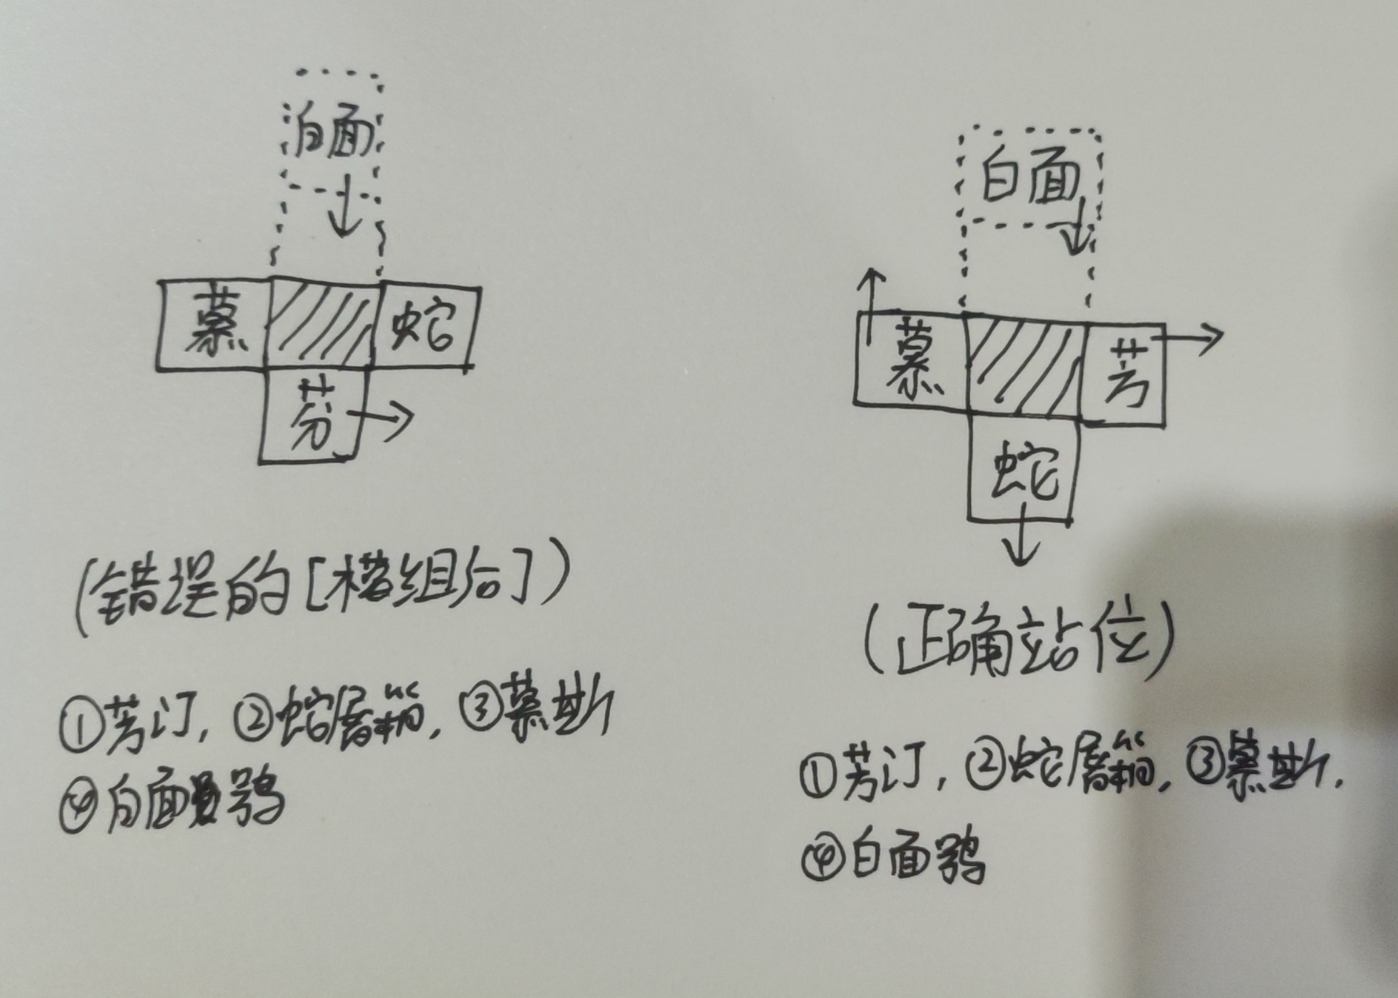 白面
慕
蛇
芬
(错误的[模组合])
①芳汀，②蛇屠箱，③慕斯
④白面鸮
白面
慕
芳
蛇
(正确站位)
①芳汀，②蛇屠箱，③慕斯，
④白面鸮